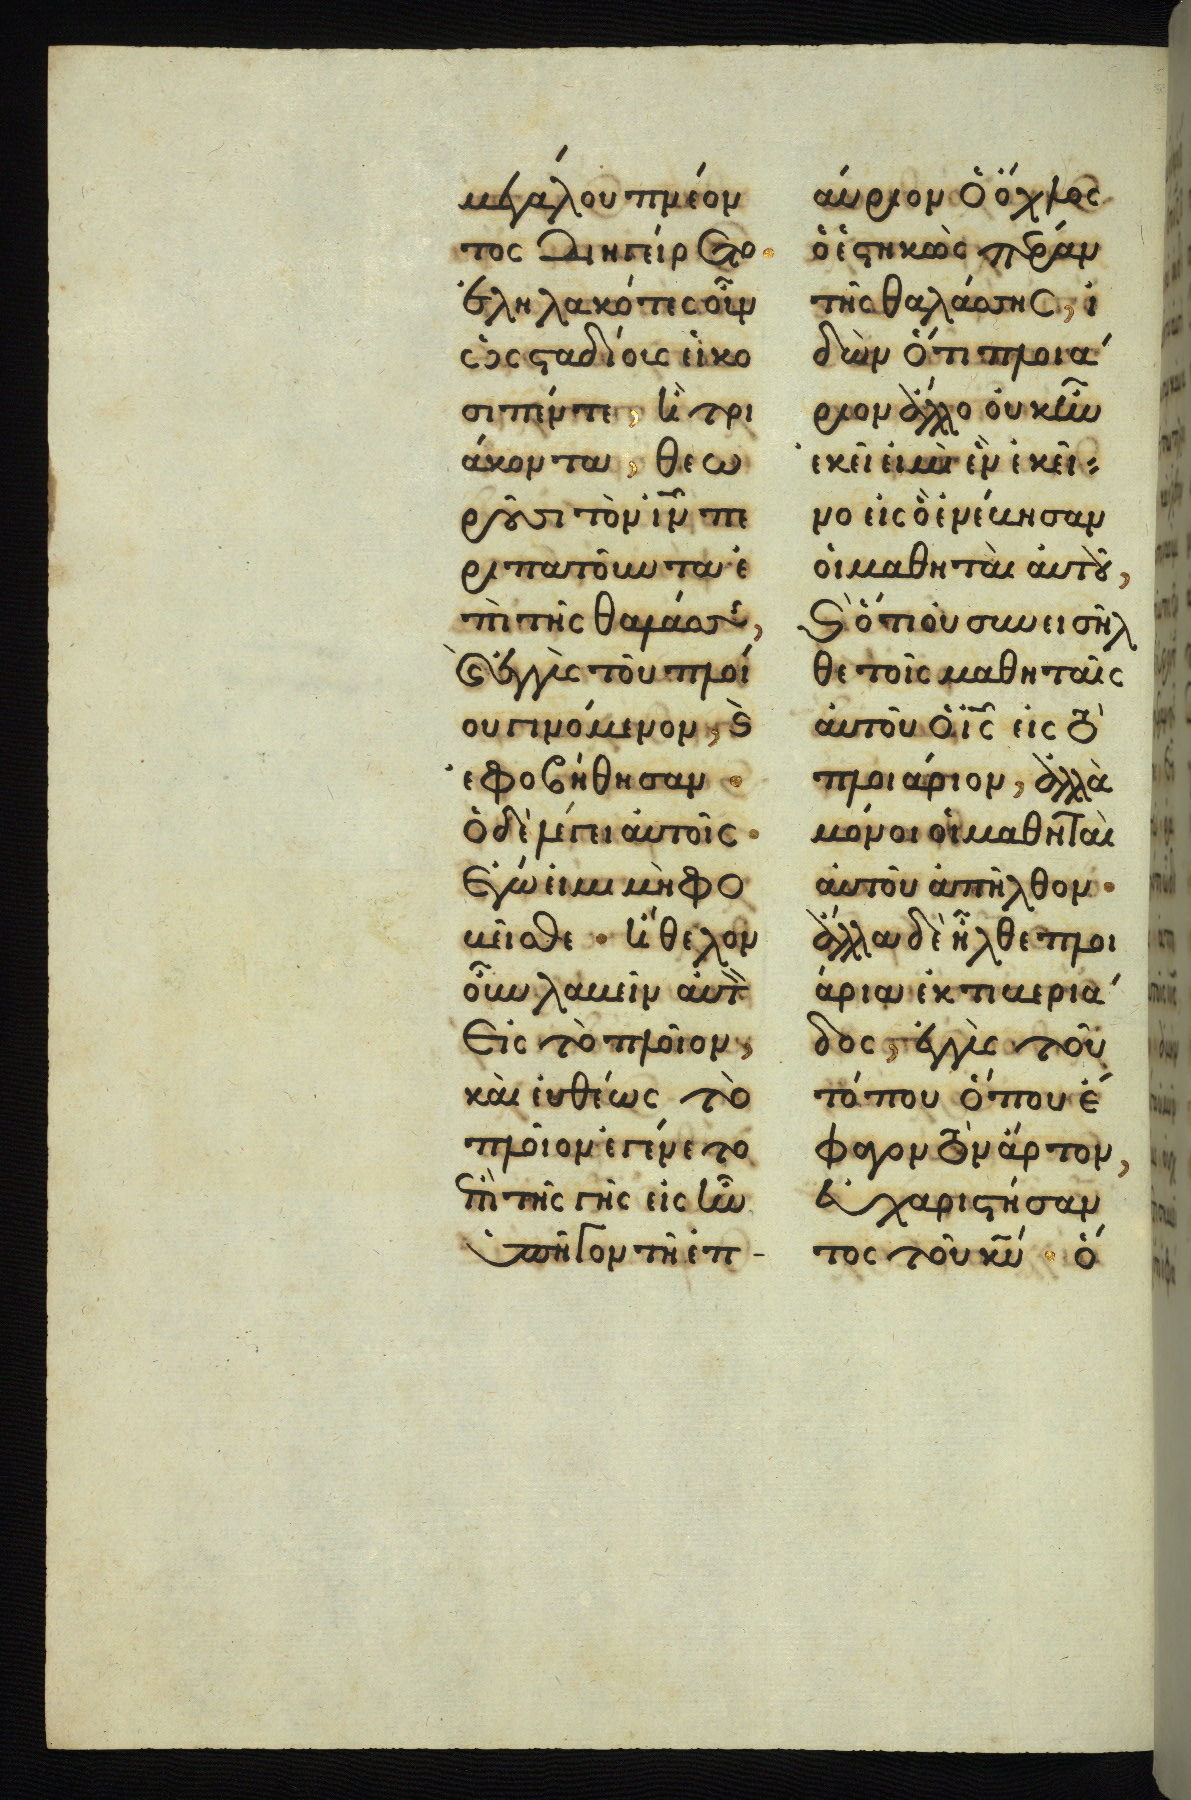 μεγάλου πνέον
τος διηγείρετο·
ἐληλακότες οὖν
ὡς σταδίους εἰκο
σιπέντε, ἢ τρι
άκοντα, θεω
ροῦσι τὸν ἰν πε
ριπατοῦντα ἐ
πὶ τῆς θαλάσσης,
καὶ ἐγγὺς τοῦ πλοί
ου γινόμενον, καὶ
ἐφοβήθησαν·
ὁ δὲ λέγει αὐτοῖς·
Ἐγώ εἰμι μὴ φο
βεῖσθε· ἤθελον
οὖν λαβεῖν αὐτὸν
Εἰς τὸ πλοῖον,
καὶ εὐθέως τὸ
πλοῖον ἐγένετο
ἐπὶ τῆς γῆς εἰς ἣν
ὑπῆγον τῆ ἐπ-
αύριον ὁ ὄχλος
ὁ ἑστηκὼς πέραν
τῆς θαλάσσης, ἰ
δὼν ὅτι πλοιά
ριον ἄλλο οὐκ ἦν
ἐκεῖ εἰμὴ ἓν ἐκεῖ-
νο εἰς ὃ ἐνέβησαν
οἱ μαθηταὶ αὐτοῦ,
καὶ ὅτι οὐ συνεισῆλ
θε τοῖς μαθηταῖς
αὐτοῦ ὁ ἰς εἰς τὸ
πλοιάριον, ἀλλὰ
μόνοι οἱ μαθηταὶ
αὐτοῦ ἀπῆλθον·
ἄλλα δὲ ἦλθε πλοι
άρια ἐκ τιβεριά
δος, ἐγγὺς τοῦ
τόπου ὅπου ἔ
φαγον τὸν ἄρτον,
εὐχαριστήσαν
τος τοῦ κυ· ὅ